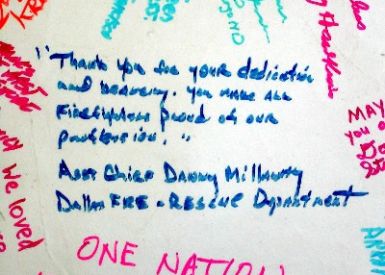 "Thank you for your dedication
and bravery. You make all
Firefighters proud of our
profession. "
Asst Chief Danny Millaway
Dallas FIRE - RESCUE Department
ONE NATION
We loved
MAY
you